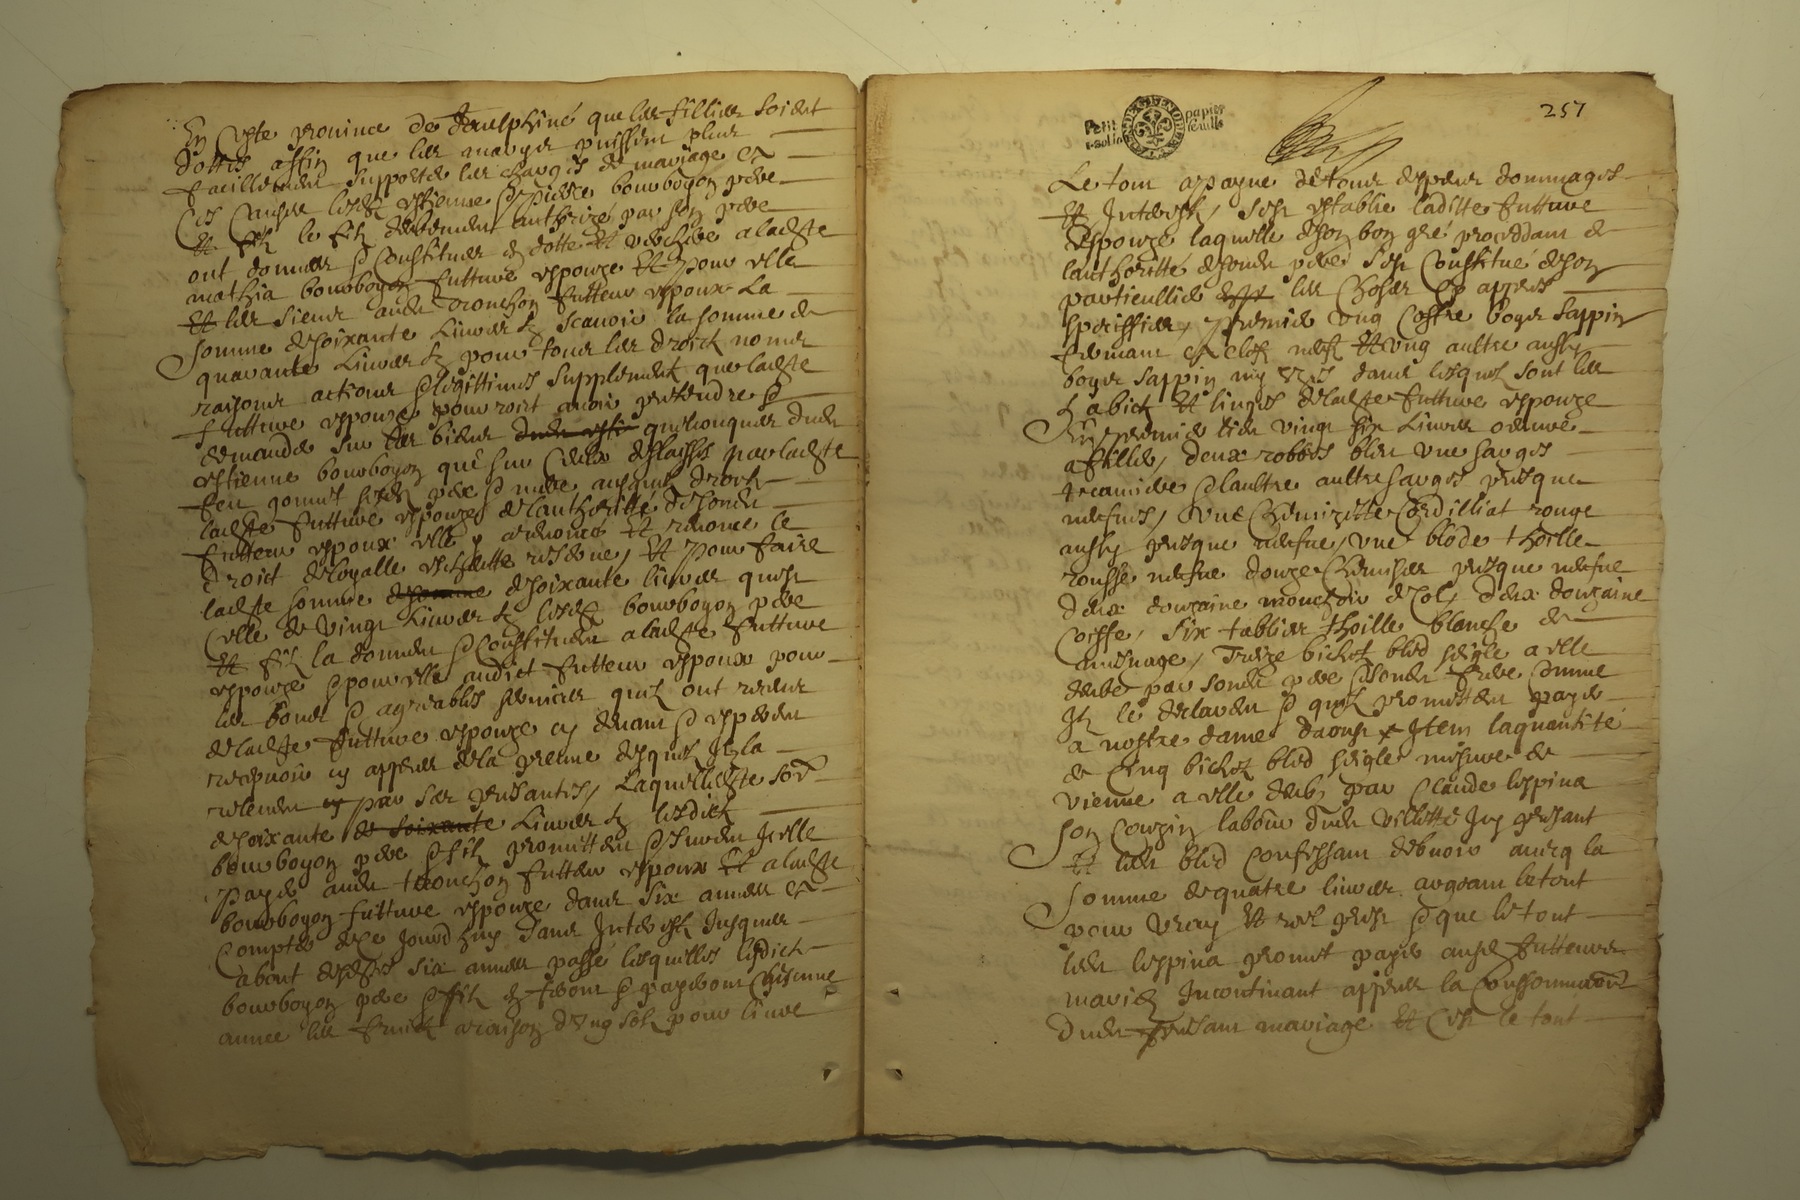 En ceste province de daulphiné que les filles soient
dottés affin que les maryes puissent plus
facillement supporter les charges de mariage et
Ces Causes lesdz estienne et pierre bourboyon pere
Et filz le filz deubement authorizé par son pere
ont donnés et Constitués en dotte et verchere a ladite
mathia bourboyon future espouze Et pour elle
Et les siens audit tronchon futteur espoux La
Somme de soixante Livres tz scavoir la somme de
quarante Livres tz pour tous les droictz noms
raisons actions et legittimes supplement que ladite
future espouze pourroit avoir pretendre et
demander sur les biens quelconques dudit
estienne bourboyon que sur Ceulx delaissés par ladite
ladite future espouze de lauthoritté desondit
futteur espoux elle y arenoncé Et renonce le
droict de loyalle eschette reservé, Et Pour faire
ladite somme de soixante livres quest
Celle de Vingt Livres tz lesdz bourboyon pere
Et filz la donnent et Constituent a ladite future
espouze et pour elle audict futteur espoux pour
les bons et agreables services quilz ont receus
de ladite future espouze cy devant et esperent
recepvoir cy appres de la preuve desquelz Ilz la
relevent par ses presantes, Laquelle dite somme
de soixante de soixante Livres tz lesdictz
bourboyon pere et filz promettent et Jurent Icelle
Payer audit tronchon futteur espoux Et a ladite
bourboyon future espouze dans six annés et
Compter de ce Jourdhuy dans Interestz Jusques
about desdites six annés passé lesquelles lesdictz
bourboyon pere et filz en feront et payeront Chascune
annee les fruictz araison dung solz pour livre
257
Petit papier
feuille
Le tour apayne de tous despens dommages
Et Interestz, Sest establie laditte future
Espouze laquelle de son bon gré proceddant de
lauthoritté desondit pere Sest Constitué deson
particullier les Choses cy appres
speciffiées, Premier Ung Coffre boyes sappin
fermant et clefz neufz Et ung aultre aussy
boyes sappin my usés dans lesquelz sont les
habictz Et linges de ladite future espouze
Livres oeuvre
a fillier, deux robbes bleu une sarges
et laultre aultre sarges presque
neufves, Une Chemizette Cordilliat rouge
aussy presque neufve, Une blode thoille
rousse neufve douze Chemises presque neufve
deux douzaine mouchoir de Col, deux douzaine
Coiffe, Six tabliers thoille blanche de
mesnage, Treize bichetz bled seigle a elle
deubz par sondit pere et sondit frere Comme
Ilz le declarent et quilz promettent payer
a nostre dame daoust Item laquantité
de Cinq bichetz bled seigle mesure de
vienne a elle deubz par Claude lespina
Son Cousin labour dudit Villette Icy presant
Et ledit bled Confessant debvoir avecq la
Somme de quatre livres argeant le tout
pour Vray Et reel prest et que le tout
ledit lespina promet payer ausdz futteurs
mariés Incontinant appres la Consommaon
dudit presant mariage Et Cest le tout